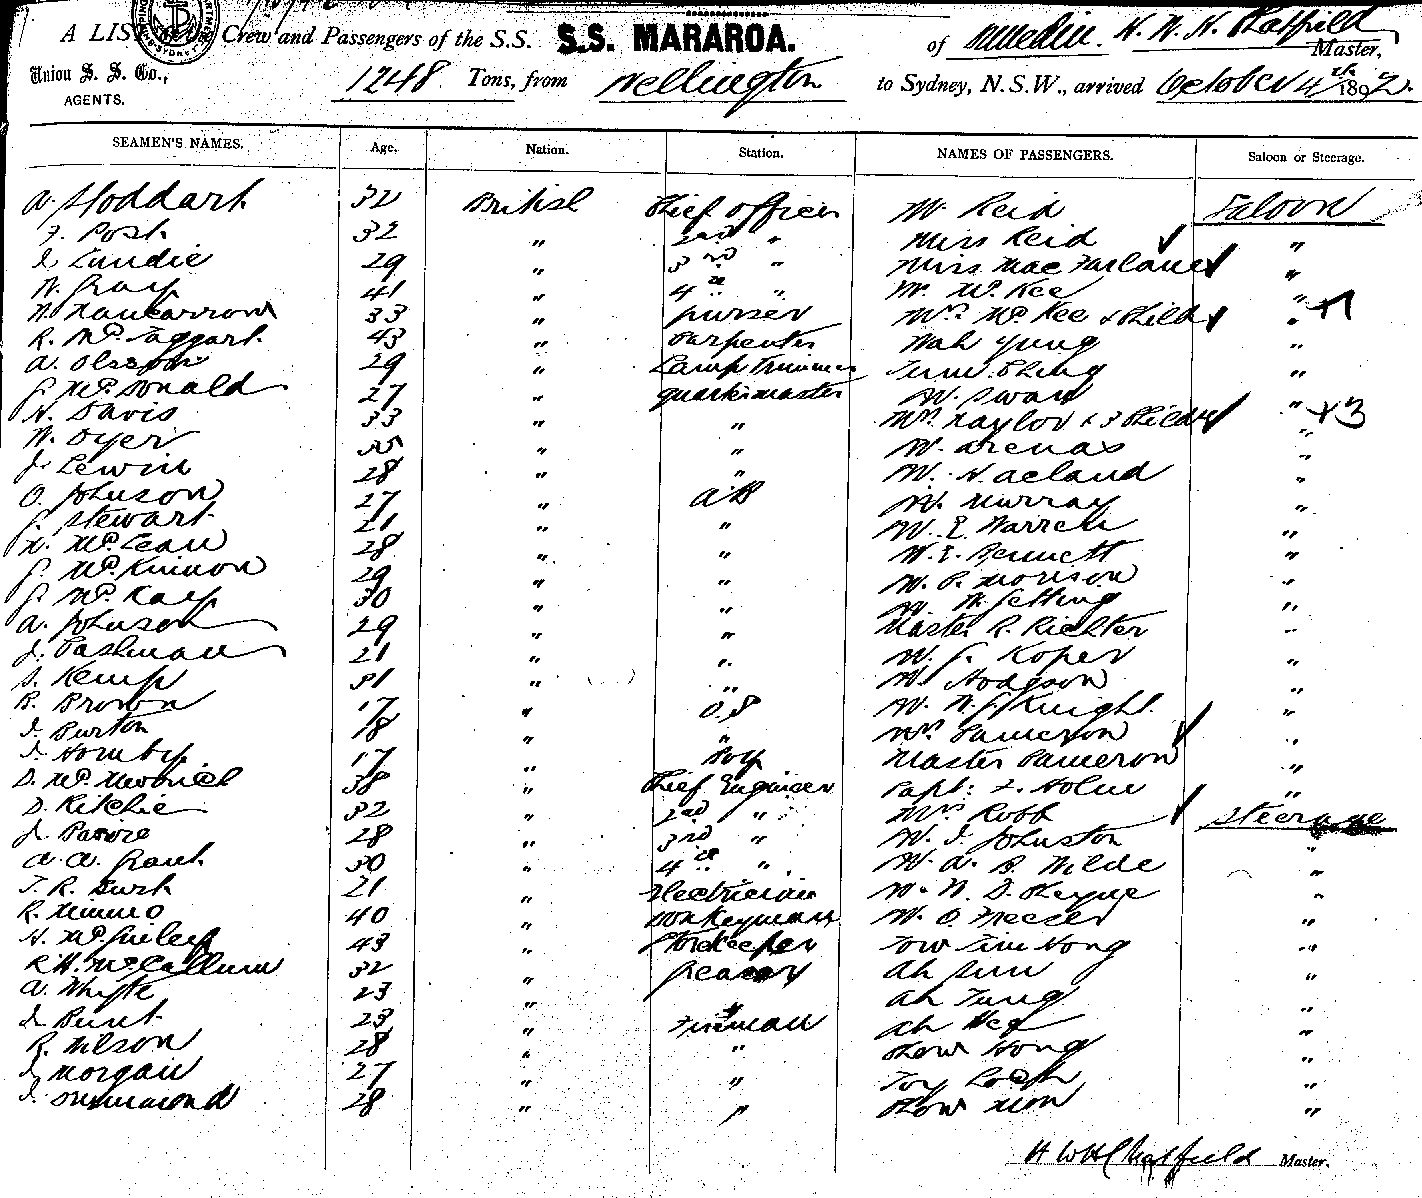 A LIST of the Crew and Passengers of the S.S. S.S. MARAROA. of Dunedin. H. W. H. Chatfield Master,
Union S. S. Co., 1248 Tons, from Wellington to Sydney, N.S.W., arrived October 4th 1892.
AGENTS.
SEAMEN'S NAMES. Age. Nation. Station. NAMES OF PASSENGERS. Saloon or Steerage.
A. Stoddart 32 British Chief Officer Mr Reid Saloon
F. Post 32 " 2nd " Miss Reid "
J. Lundie 29 " 3rd " Miss MacFarlane "
W. Gray 41 " 4th " Mr McKee " +1
W. Nancarrow 33 " purser Mrs McKee & Child "
R. McTaggart 43 " Carpenter Wah Yung "
A. Olsson 29 " Lamp Trimmer Ching "
G. McDonald 27 " quartermaster Mr Swan "
H. Davis 33 " " Mrs Naylor & 3 Children " +3
W. Dyer 35 " " Mr Arenas "
J. Lewin 28 " " Mr H Acland "
O. Johnson 27 " AB Mr Murray "
G. Stewart 21 " " Mr E Warren "
N. McLean 28 " " Mr E. Bennett "
G. McKinnon 29 " " Mr P. Morison "
G. McKay 30 " " Mr W Getting "
A. Johnson 29 " " Master R. Richter "
J. Pashman 21 " " Mr G. Roper "
S. Kemp 31 " " Mr Hodgson "
R. Brown 17 " O.S Mr W. G. Knight "
J. Burton 18 " " Mrs Cameron "
J. Hornby 17 " Boy Master Cameron "
D. 38 " Chief Engineer Capt: F. Holm "
D. Ritchie 32 " 2nd " Mrs Robb Steerage
J. 28 " 3rd " Mr J. Johnston "
A. A. Grant 30 " 4th " Mr A. B. Wilde "
T. R. Burt 21 " Electrician Mr W. D. Cheyne "
R. Nimmo 40 " Donkeyman Mr O. Meeser "
H. McGinley 43 " Storekeeper Tow Tim Hong "
R H. McCallum 32 " Greaser Ah Sun "
A. Whyte 23 " " Ah Tung "
J. Bunt 23 " Fireman Ah Hee "
R. Wilson 28 " " Chow Hong "
J. Morgan 27 " " Toy "
J. Drummond 28 " " Chow Mon "
H W H Chatfield Master.